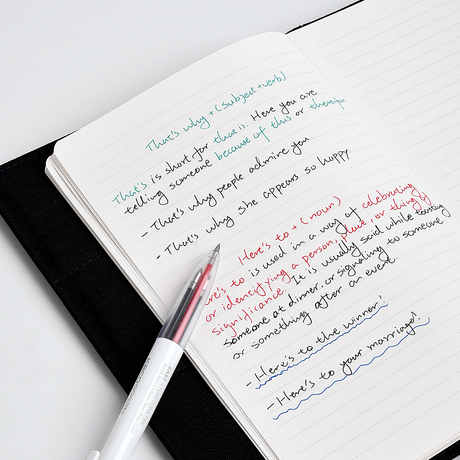 That's why + (subject + verb)
That's is short for that is. Here you are
telling someone because of this or therefor
- That's why people admire you.
- That's why she appears so happy
Here's to + (noun)
Here's to is used in a way of celebrating
or identifying a person, place, or thing of
significance. It is usually said while toasting
someone at dinner, or signaling to someone
or something after an event.
- Here's to the winner!
- Here's to your marriage!